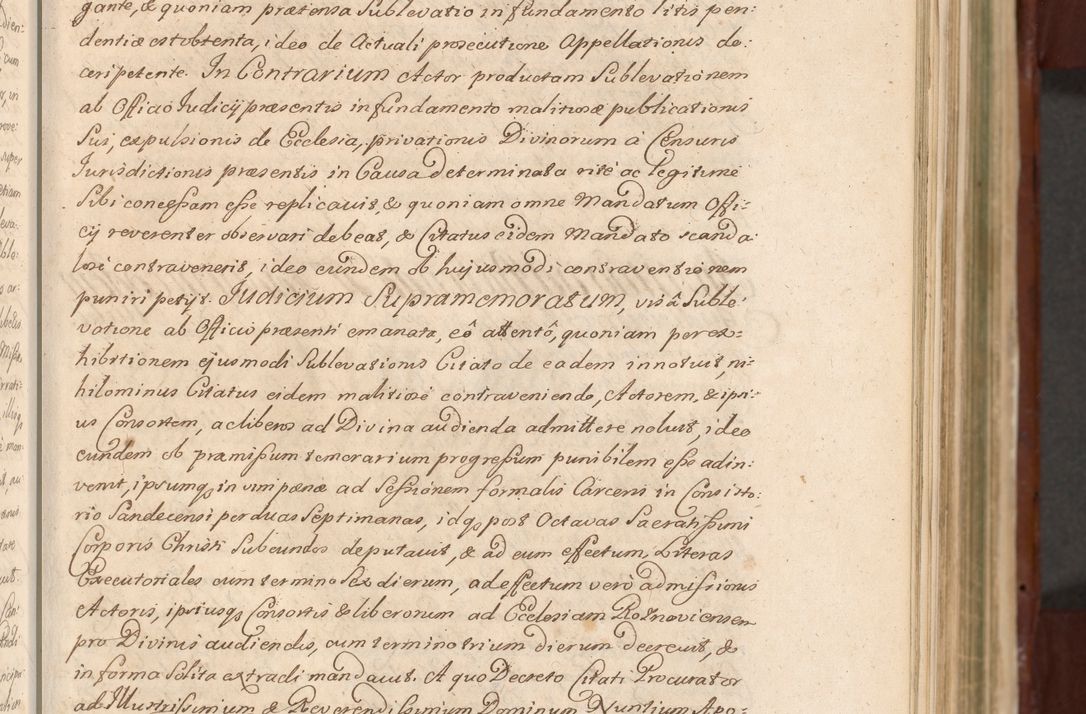 gante, & quoniam prætensa Sublevatio in fundamento litis pen-
dentiæ est obtenta, ideo de Actuali prosecutione Appellationis do:
ceri petente. In Contrarium Actor productam Sublevationem
ab Officio Judicij præsentis in fundamento malitiosæ publicationis
Sui, expulsionis de Ecclesia, privationis Divinorum à Censuris
Jurisdictionis præsentis in Causa determinata ritè ac legitimè
Sibi concessam esse replicavit, & quoniam omne Mandatum Offi:
cij reverenter observari debeat, & Citatus eidem Mandato scanda
losè contravenerit, ideo eundem ob hujusmodi contraventionem
puniri petijt. Judicium Supramemoratum, visâ Suble:
vatione ab Officio præsenti emanata, eô attentô, quoniam per ex:
hibitionem ejusmodi Sublevationis Citato de eadem innotuit, ni:
hilominus Citatus eidem malitiosè contraveniendo, Actorem, & ipsi:
us Consortem, ac liberos ad Divina audienda admittere noluit, ideo
eundem ob præmissum temerarium progressum punibilem esse adin:
venit, ipsumq3 in vim pænæ ad Sessionem formalis Carceris in Consisto:
rio Sandecensi per duas Septimanas, idq3 post Octavas Sacratissimi
Corporis Christi Subeundos deputavit, & ad eum effectum, Literas
Executoriales cum termino Sex dierum, ad effectum verò admissionis
Actoris, ipsiusq3 Consortis & liberorum ad Ecclesiam Rożnoviensem
pro Divinis audiendis, cum termino trium dierum decrevit, &
in forma Solita extradi mandavit. A quo Decreto Citati Procurator
ad Illustrissimum & Reverendissimum Dominum Nuntium Apo-